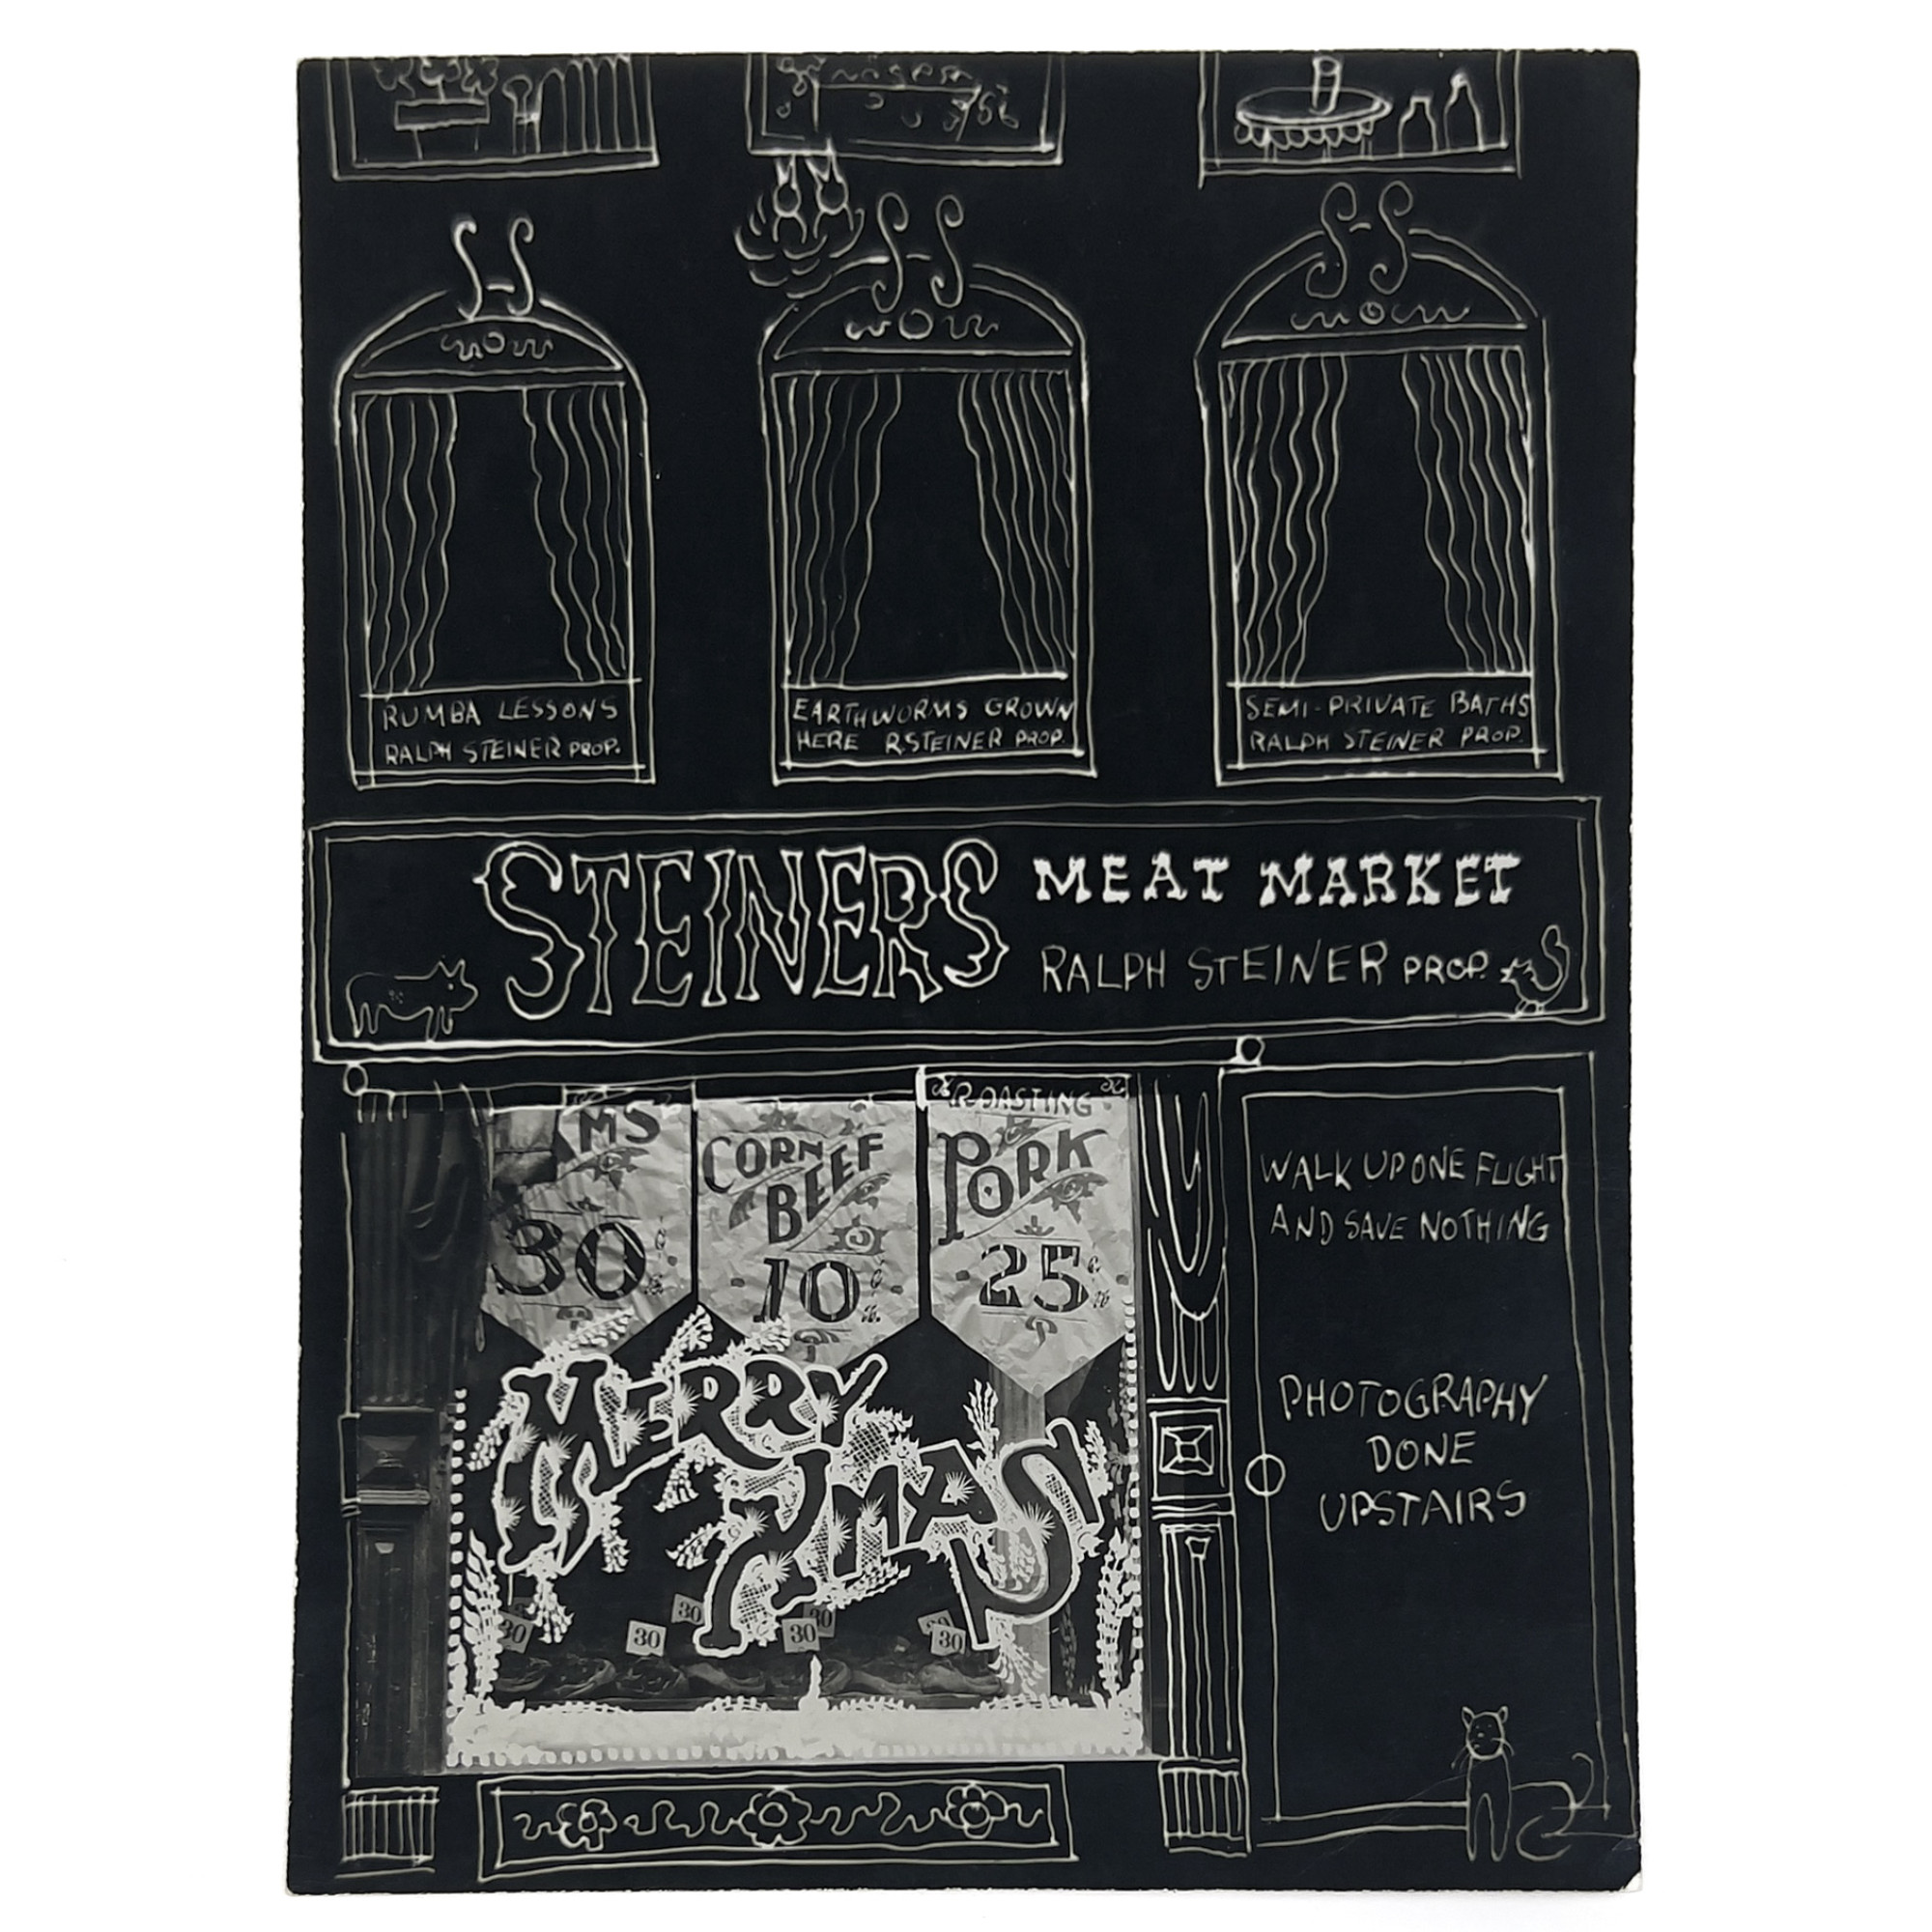 RUMBA LESSONS
RALPH STEINER PROP.
EARTHWORMS GROWN
HERE R.STEINER PROP.
SEMI-PRIVATE BATHS
RALPH STEINER PROP.
STEINERS
MEAT MARKET
RALPH STEINER PROP.
MS
30
CORN
BEEF
10
ROASTING
PORK
25
MERRY
XMAS
30
30
30
30
30
WALK UP ONE FLIGHT
AND SAVE NOTHING
PHOTOGRAPHY
DONE
UPSTAIRS